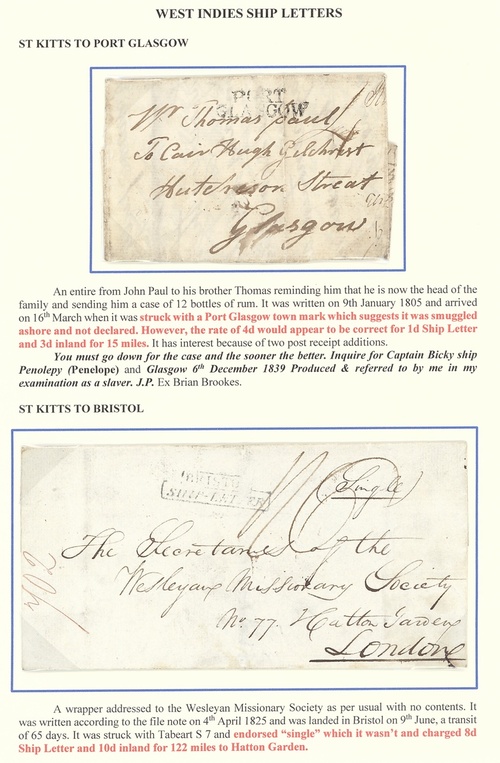 WEST INDIES SHIP LETTERS
ST KITTS TO PORT GLASGOW
PORT
GLASGOW
Mr Thomas paul
To Cair Hugh Gilchrist
Hutcheson Streat
Glasgow
An entire from John Paul to his brother Thomas reminding him that he is now the head of the
family and sending him a case of 12 bottles of rum. It was written on 9th January 1805 and arrived
on 16th March when it was struck with a Port Glasgow town mark which suggests it was smuggled
ashore and not declared. However, the rate of 4d would appear to be correct for 1d Ship Letter
and 3d inland for 15 miles. It has interest because of two post receipt additions.
You must go down for the case and the sooner the better. Inquire for Captain Bicky ship
Penolepy (Penelope) and Glasgow 6th December 1839 Produced & referred to by me in my
examination as a slaver. J.P. Ex Brian Brookes.
ST KITTS TO BRISTOL
BRISTOL
SHIP-LETTER
(Single)
The Secretaries of the
Wesleyan Missionary Society
No. 77. Hatton Garden
London
A wrapper addressed to the Wesleyan Missionary Society as per usual with no contents. It
was written according to the file note on 4th April 1825 and was landed in Bristol on 9th June, a transit
of 65 days. It was struck with Tabeart S 7 and endorsed “single” which it wasn't and charged 8d
Ship Letter and 10d inland for 122 miles to Hatton Garden.